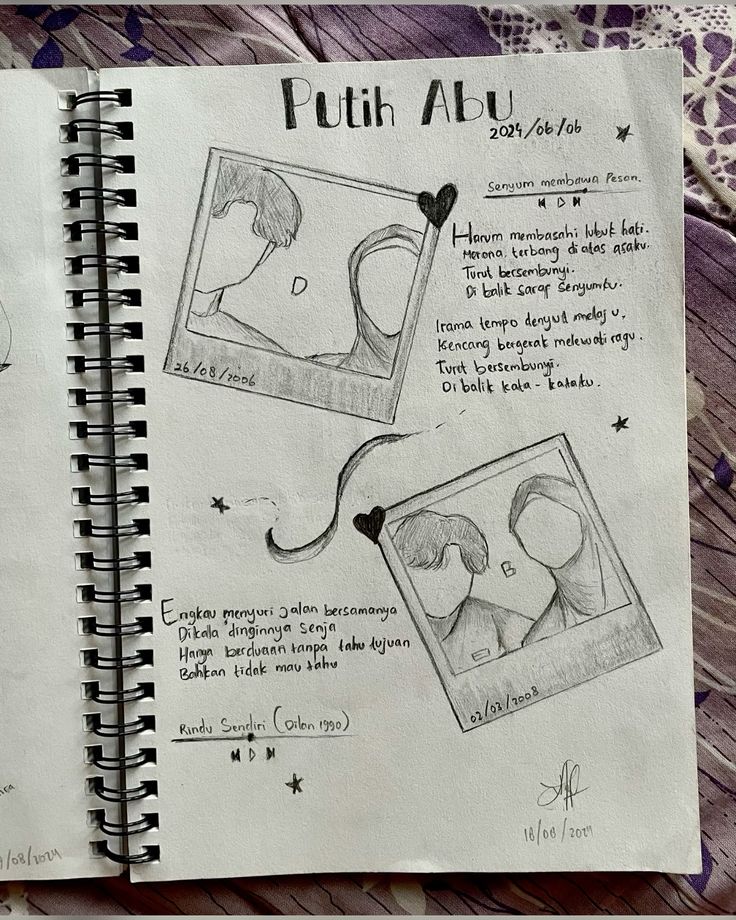 Putih Abu
2024/06/06
Senyum membawa Pesan.
Harum membasahi lubuk hati.
Merona, terbang diatas asaku.
Turut bersembunyi.
Di balik saraf senyumku.
Irama tempo denyut melaju,
Kencang bergerak melewati ragu.
Turut bersembunyi.
Di balik kata - kataku.
D
26/08/2006
B
02/03/2008
Engkau menyuri jalan bersamanya
Dikala dinginnya senja
Hanya berduaan tanpa tahu tujuan
Bahkan tidak mau tahu
Rindu Sendiri (Dilan 1990)
/08/2024